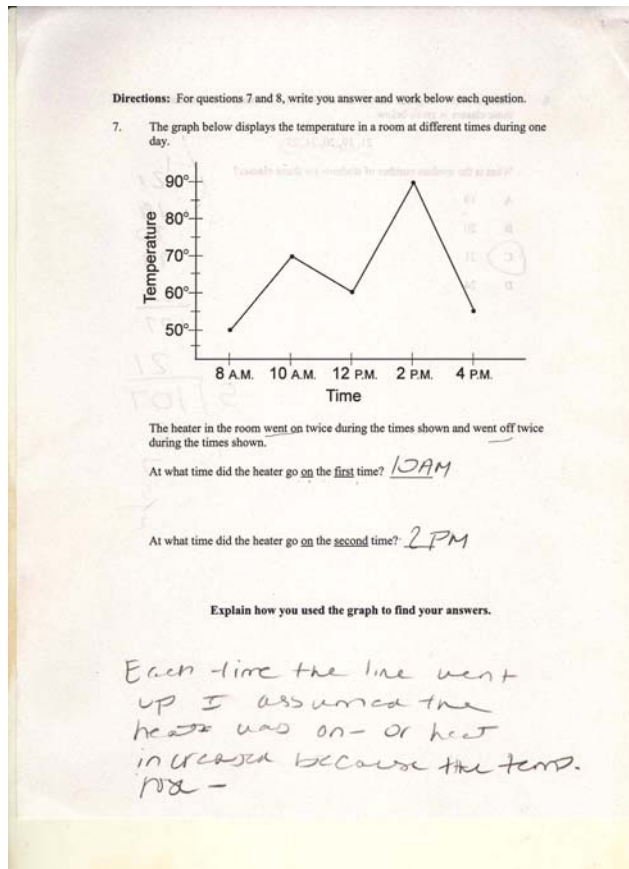 Directions: For questions 7 and 8, write you answer and work below each question.
7. The graph below displays the temperature in a room at different times during one
day.
90°
80°
70°
60°
50°
Temperature
8 A.M. 10 A.M. 12 P.M. 2 P.M. 4 P.M.
Time
The heater in the room went on twice during the times shown and went off twice
during the times shown.
At what time did the heater go on the first time? 10AM
At what time did the heater go on the second time? 2 PM
Explain how you used the graph to find your answers.
Each time the line went
up I assumed the
heater was on- or heat
increased because the temp.
rose -